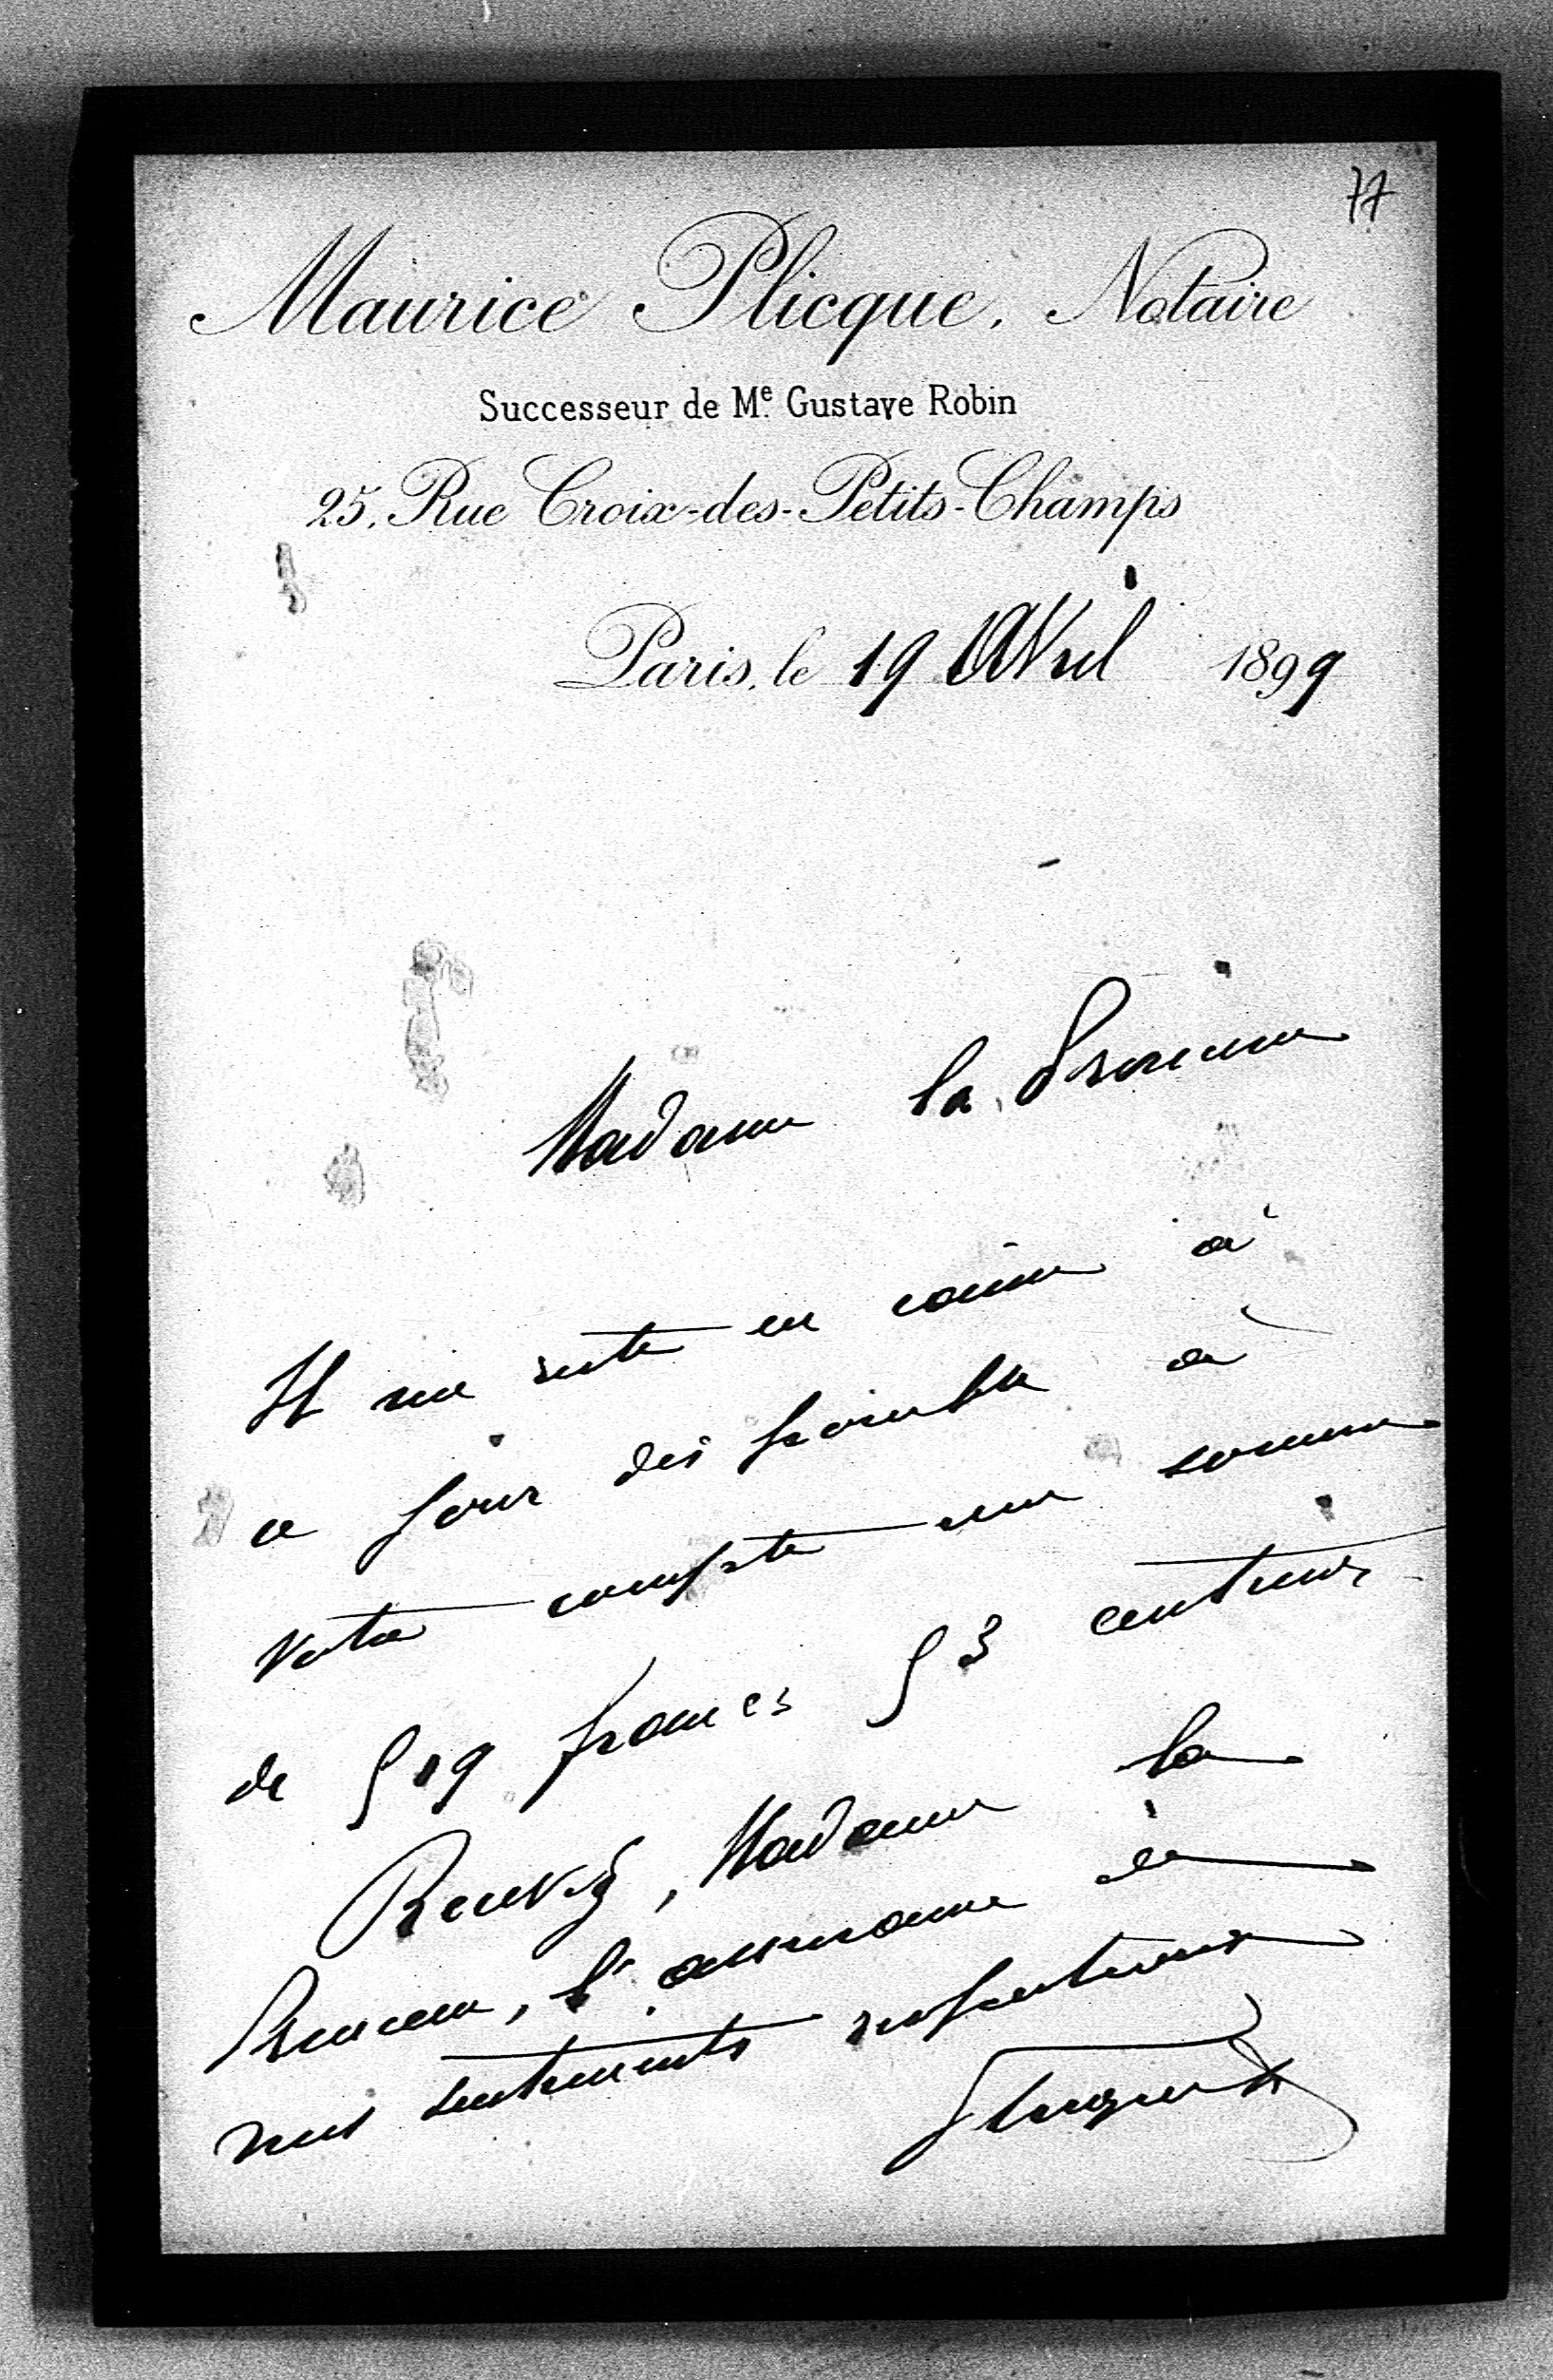 77
Maurice Plicque, Notaire
Successeur de Me. Gustave Robin
25, Rue Croix-des-Petits-Champs
Paris, le 19 Avril 1899
Madame la Princesse
Il me reste en caisse à
ce jour disponible à
votre compte une somme
de 519 francs 53 centimes
Recevez, Madame la
Princesse, l'assurance de
mes sentiments respectueux